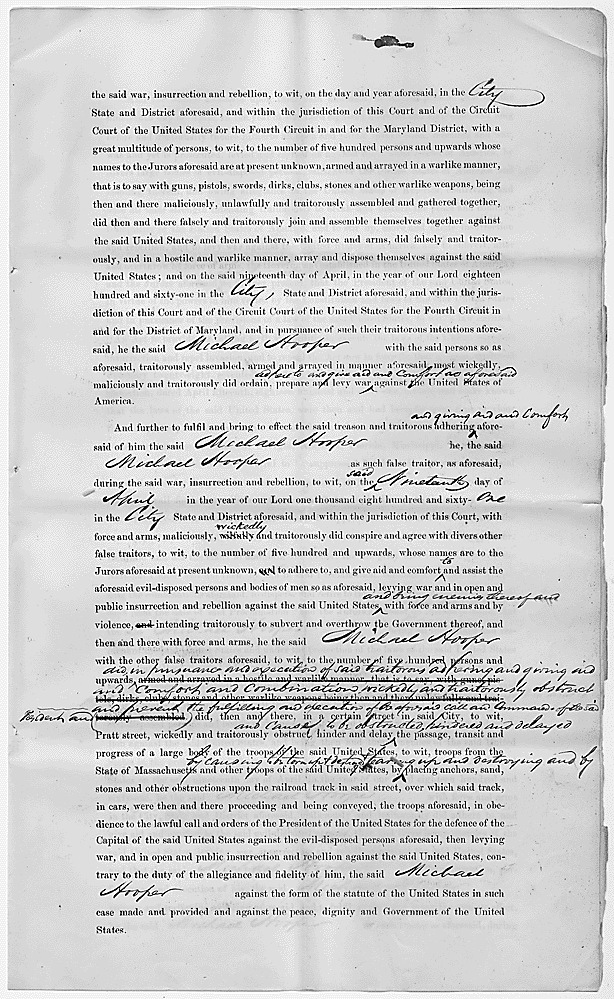 the said war, insurrection and rebellion, to wit, on the day and year aforesaid, in the City
State and District aforesaid, and within the jurisdiction of this Court and of the Circuit
Court of the United States for the Fourth Circuit in and for the Maryland District, with a
great multitude of persons, to wit, to the number of five hundred persons and upwards whose
names to the Jurors aforesaid are at present unknown, armed and arrayed in a warlike manner,
that is to say with guns, pistols, swords, dirks, clubs, stones and other warlike weapons, being
then and there maliciously, unlawfully and traitorously assembled and gathered together,
did then and there falsely and traitorously join and assemble themselves together against
the said United States, and then and there, with force and arms, did falsely and traitor-
ously, and in a hostile and warlike manner, array and dispose themselves against the said
United States; and on the said nineteenth day of April, in the year of our Lord eighteen
hundred and sixty-one in the City, State and District aforesaid, and within the juris-
diction of this Court and of the Circuit Court of the United States for the Fourth Circuit in
and for the District of Maryland, and in pursuance of such their traitorous intentions afore-
said, he the said Michael Hooper with the said persons so as
aforesaid, traitorously assembled, armed and arrayed in manner aforesaid, most wickedly,
adhere to and give aid and Comfort as aforesaid
maliciously and traitorously did ordain, prepare and levy war against the United States of
America.
and giving aid and Comfort
And further to fulfil and bring to effect the said treason and traitorous adhering afore-
said of him the said Michael Hooper he, the said
Michael Hooper as such false traitor, as aforesaid,
said
during the said war, insurrection and rebellion, to wit, on the Nineteenth day of
April in the year of our Lord one thousand eight hundred and sixty-One
in the City State and District aforesaid, and within the jurisdiction of this Court, with
wickedly
force and arms, maliciously, and traitorously did conspire and agree with divers other
false traitors, to wit, to the number of five hundred and upwards, whose names are to the
to
Jurors aforesaid at present unknown, to adhere to, and give aid and comfort and assist the
aforesaid evil-disposed persons and bodies of men so as aforesaid, levying war and in open and
and being enemies thereof and
public insurrection and rebellion against the said United States, with force and arms and by
violence, and intending traitorously to subvert and overthrow the Government thereof, and
then and there with force and arms, he the said Michael Hooper
with the other false traitors aforesaid, to wit, to the number of five hundred persons and
did in pursuance and execution of said traitorous adhering and giving aid
upwards, armed and arrayed in a hostile and warlike manner, that is to say, with guns, pis-
and Comfort, and Combination wickedly and traitorously obstruct
tols, dirks, clubs, stones and other warlike weapons being then and there unlawfully and trai-
and prevent the fulfilling and execution of the aforesaid call and Command of the said
President and
torously assembled did, then and there, in a certain street in said City, to wit,
and Cause to be obstructed, hindered and delayed
Pratt street, wickedly and traitorously obstruct, hinder and delay the passage, transit and
progress of a large body of the troops of the said United States, to wit, troops from the
by causing to be tearing up and destroying and by
State of Massachusetts and other troops of the said United States, by placing anchors, sand,
stones and other obstructions upon the railroad track in said street, over which said track,
in cars, were then and there proceeding and being conveyed, the troops aforesaid, in obe-
dience to the lawful call and orders of the President of the United States for the defence of the
Capital of the said United States against the evil-disposed persons aforesaid, then levying
war, and in open and public insurrection and rebellion against the said United States, con-
trary to the duty of the allegiance and fidelity of him, the said Michael
Hooper against the form of the statute of the United States in such
case made and provided and against the peace, dignity and Government of the United
States.